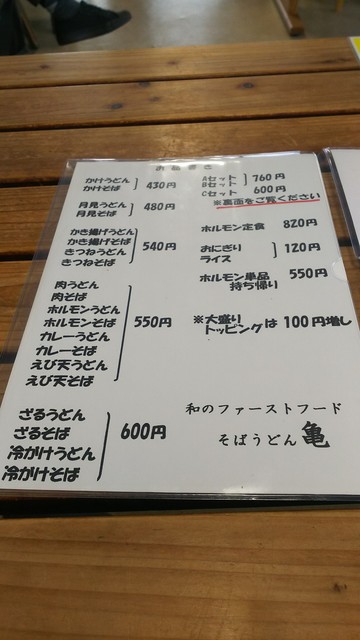 かけうどん
かけそば
430円
月見うどん
月見そば
480円
かき揚げうどん
かき揚げそば
きつねうどん
きつねそば
540円
肉うどん
肉そば
ホルモンうどん
ホルモンそば
カレーうどん
カレーそば
えび天うどん
えび天そば
550円
ざるうどん
ざるそば
冷がけうどん
冷がけそば
600円
Aセット
Bセット
760円
Cセット 600円
※裏面をご覧ください
ホルモン定食 820円
おにぎり
ライス
120円
ホルモン単品 550円
持ち帰り
※大盛り
トッピング は 100円増し
和のファーストフード
そばうどん 亀